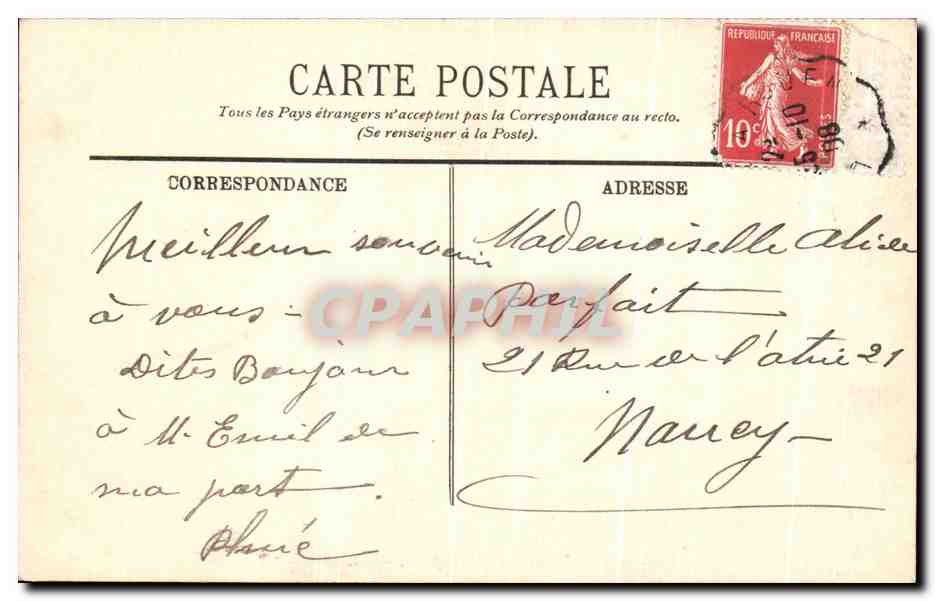 CARTE POSTALE
Tous les Pays étrangers n'acceptent pas la Correspondance au recto.
(Se renseigner à la Poste).
REPUBLIQUE FRANÇAISE
10 c
POSTES
CORRESPONDANCE
Meilleur souvenir
à vous -
Dites Bonjour
à M. Emil de
ma part.
ADRESSE
Mademoiselle Alice
Parfait
21 Rue de l'atrie 21
Nancy -
CPAPHIL